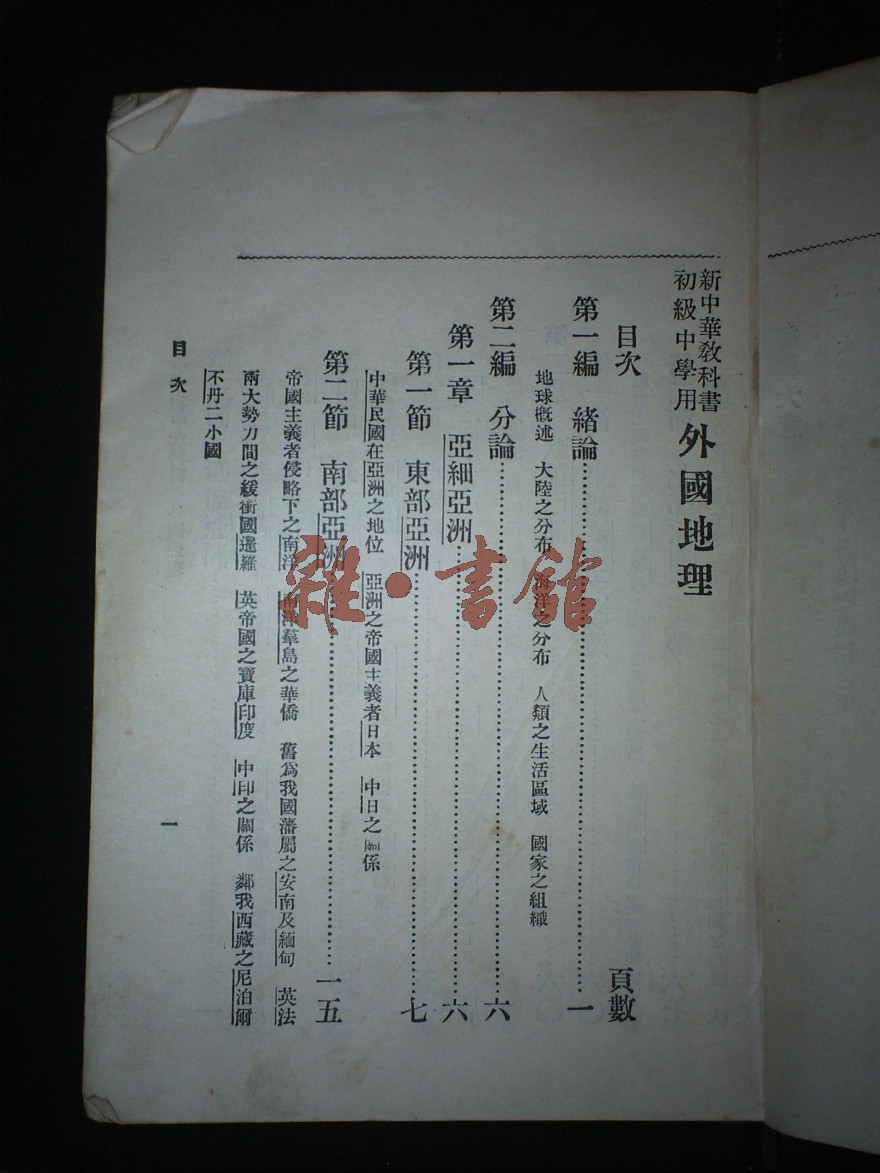 新中華教科書
初級中學用
外國地理
目次 頁數
第一編 緒論 一
地球概述 大陸之分布 海洋之分布 人類之生活區域 國家之組織
第二編 分論 六
第一章 亞細亞洲 六
第一節 東部亞洲 七
中華民國在亞洲之地位 亞洲之帝國主義者日本 中日之關係
第二節 南部亞洲 一五
帝國主義者侵略下之南洋 南洋羣島之華僑 舊爲我國藩屬之安南及緬甸 英法
兩大勢力間之緩衝國暹羅 英帝國之寶庫印度 中印之關係 鄰我西藏之尼泊爾
不丹二小國
目次
一
雜·書館